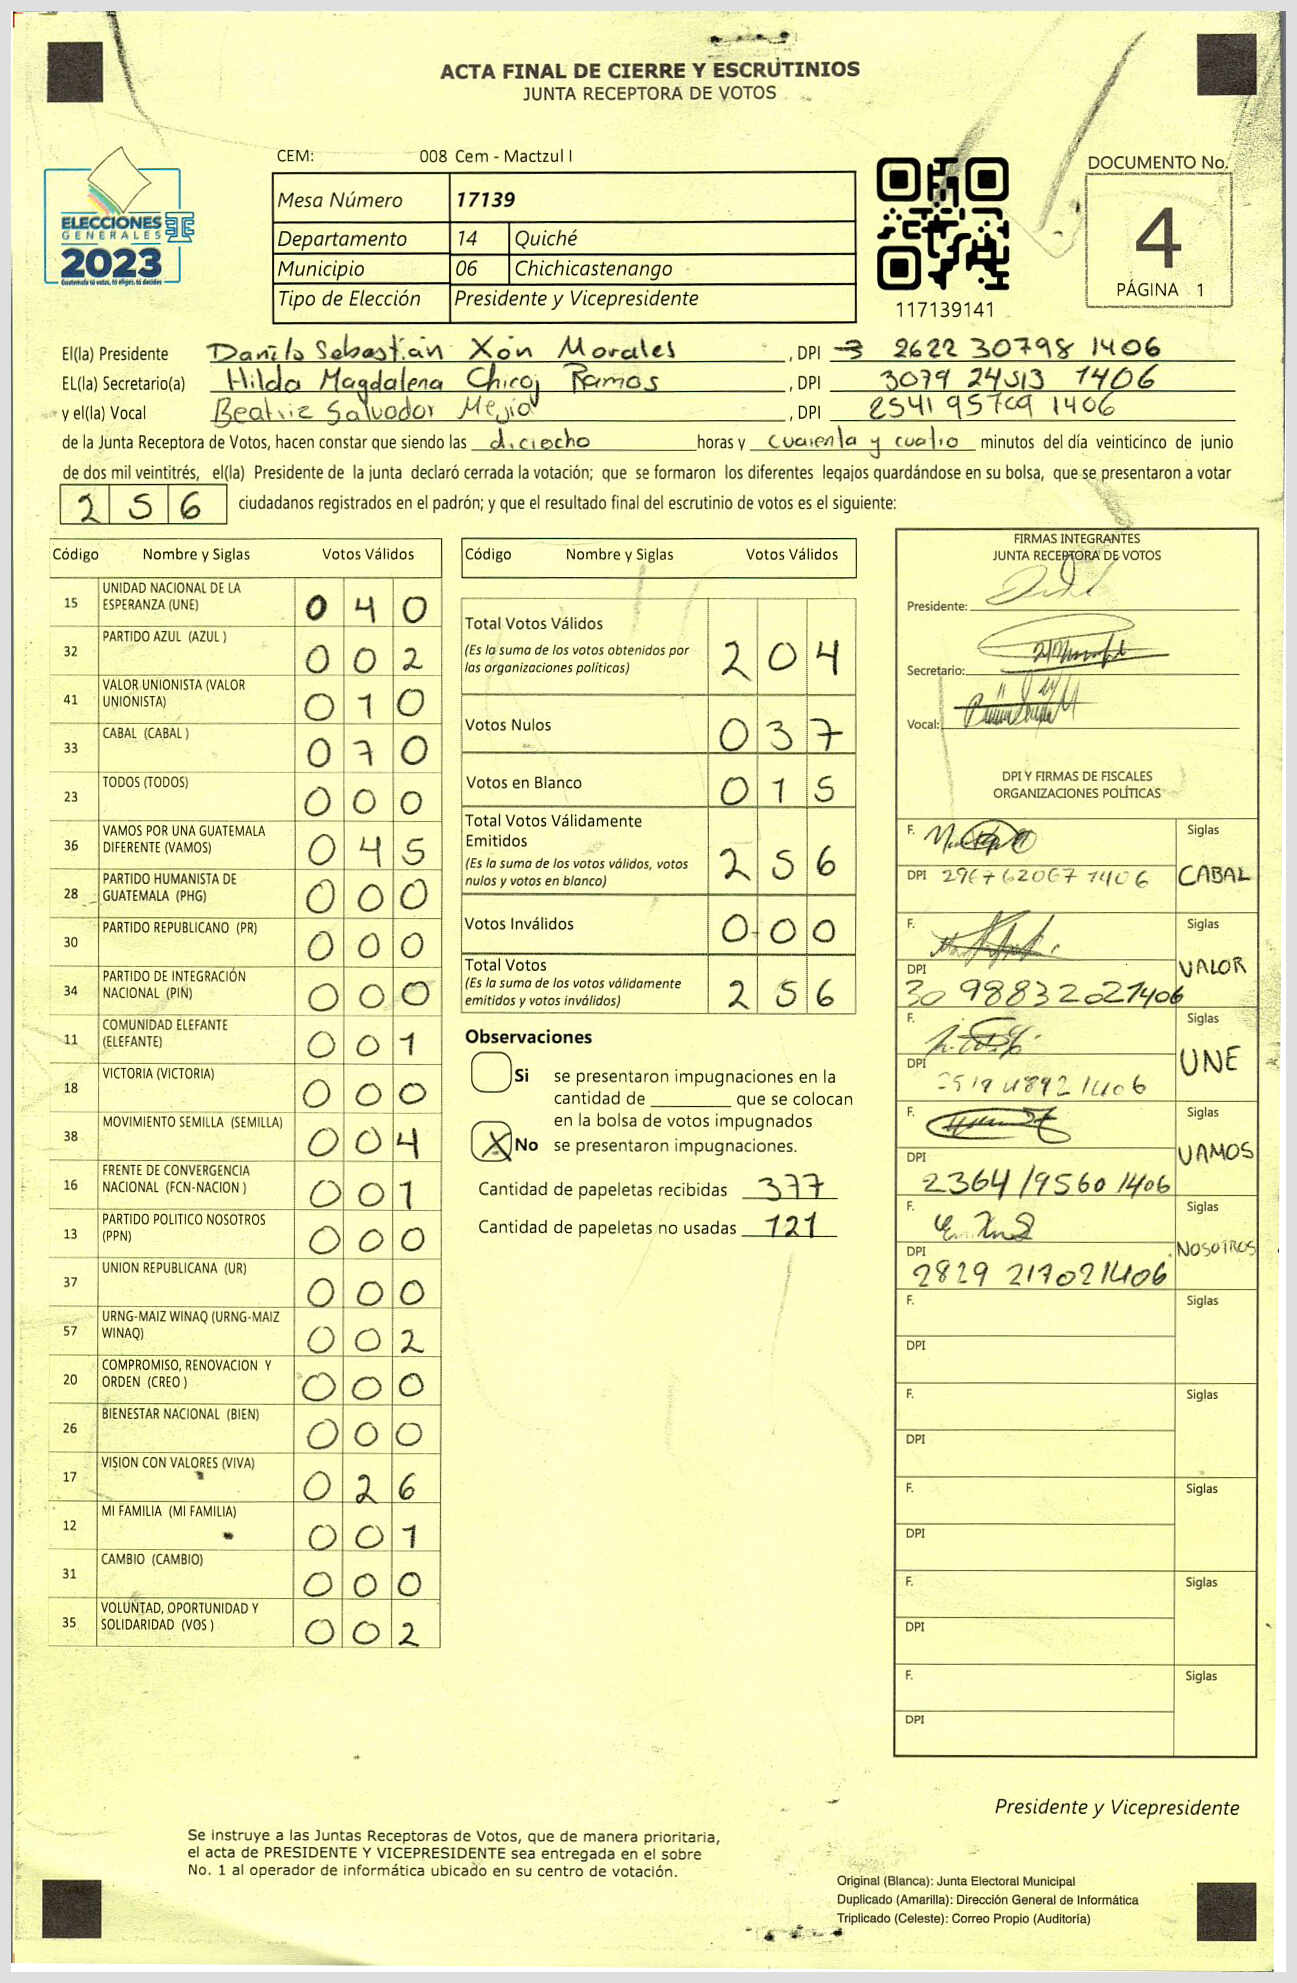 ACTA FINAL DE CIERRE Y ESCRUTINIOS
JUNTA RECEPTORA DE VOTOS
ELECCIONES
GENERALES
2023
Guatemala tú votas, tú eliges, tú decides
CEM: 008 Cem - Mactzul I
Mesa Número 17139
Departamento 14 Quiché
Municipio 06 Chichicastenango
Tipo de Elección Presidente y Vicepresidente
117139141
DOCUMENTO No.
4
PÁGINA 1
El(la) Presidente Danilo Sebastián Xón Morales, DPI 2622 30798 1406
EL(la) Secretario(a) Hilda Magdalena Chicoj Ramos, DPI 3079 24513 1406
y el(la) Vocal Beatriz Salvador Mejia, DPI 2541 95709 1406
de la Junta Receptora de Votos, hacen constar que siendo las dieciocho horas y cuarenta y cuatro minutos del día veinticinco de junio
de dos mil veintitrés, el(la) Presidente de la junta declaró cerrada la votación; que se formaron los diferentes legajos guardándose en su bolsa, que se presentaron a votar
256 ciudadanos registrados en el padrón; y que el resultado final del escrutinio de votos es el siguiente:
Código Nombre y Siglas Votos Válidos
15 UNIDAD NACIONAL DE LA ESPERANZA (UNE) 040
32 PARTIDO AZUL (AZUL ) 002
41 VALOR UNIONISTA (VALOR UNIONISTA) 010
33 CABAL (CABAL ) 070
23 TODOS (TODOS) 000
36 VAMOS POR UNA GUATEMALA DIFERENTE (VAMOS) 045
28 PARTIDO HUMANISTA DE GUATEMALA (PHG) 000
30 PARTIDO REPUBLICANO (PR) 000
34 PARTIDO DE INTEGRACIÓN NACIONAL (PIN) 000
11 COMUNIDAD ELEFANTE (ELEFANTE) 001
18 VICTORIA (VICTORIA) 000
38 MOVIMIENTO SEMILLA (SEMILLA) 004
16 FRENTE DE CONVERGENCIA NACIONAL (FCN-NACION ) 001
13 PARTIDO POLITICO NOSOTROS (PPN) 000
37 UNION REPUBLICANA (UR) 000
57 URNG-MAIZ WINAQ (URNG-MAIZ WINAQ) 002
20 COMPROMISO, RENOVACION Y ORDEN (CREO ) 000
26 BIENESTAR NACIONAL (BIEN) 000
17 VISION CON VALORES (VIVA) 026
12 MI FAMILIA (MI FAMILIA) 001
31 CAMBIO (CAMBIO) 000
35 VOLUNTAD, OPORTUNIDAD Y SOLIDARIDAD (VOS ) 002
Código Nombre y Siglas Votos Válidos
Total Votos Válidos 204
(Es la suma de los votos obtenidos por
las organizaciones políticas)
Votos Nulos 037
Votos en Blanco 015
Total Votos Válidamente
Emitidos 256
(Es la suma de los votos válidos, votos
nulos y votos en blanco)
Votos Inválidos 000
Total Votos 256
(Es la suma de los votos válidamente
emitidos y votos inválidos)
Observaciones
Si se presentaron impugnaciones en la
cantidad de ________ que se colocan
en la bolsa de votos impugnados
X No se presentaron impugnaciones.
Cantidad de papeletas recibidas 377
Cantidad de papeletas no usadas 121
FIRMAS INTEGRANTES
JUNTA RECEPTORA DE VOTOS
Presidente:
Secretario:
Vocal:
DPI Y FIRMAS DE FISCALES
ORGANIZACIONES POLÍTICAS
F. Siglas
DPI 2967 62067 1406 CABAL
F. Siglas
DPI VALOR
30 98832021406
F. Siglas
DPI UNE
F. Siglas
DPI VAMOS
2364 19560 1406
F. Siglas
DPI NOSOTROS
2829 217021406
F. Siglas
DPI
F. Siglas
DPI
F. Siglas
DPI
F. Siglas
DPI
F. Siglas
DPI
Presidente y Vicepresidente
Se instruye a las Juntas Receptoras de Votos, que de manera prioritaria,
el acta de PRESIDENTE Y VICEPRESIDENTE sea entregada en el sobre
No. 1 al operador de informática ubicado en su centro de votación.
Original (Blanca): Junta Electoral Municipal
Duplicado (Amarilla): Dirección General de Informática
Triplicado (Celeste): Correo Propio (Auditoría)